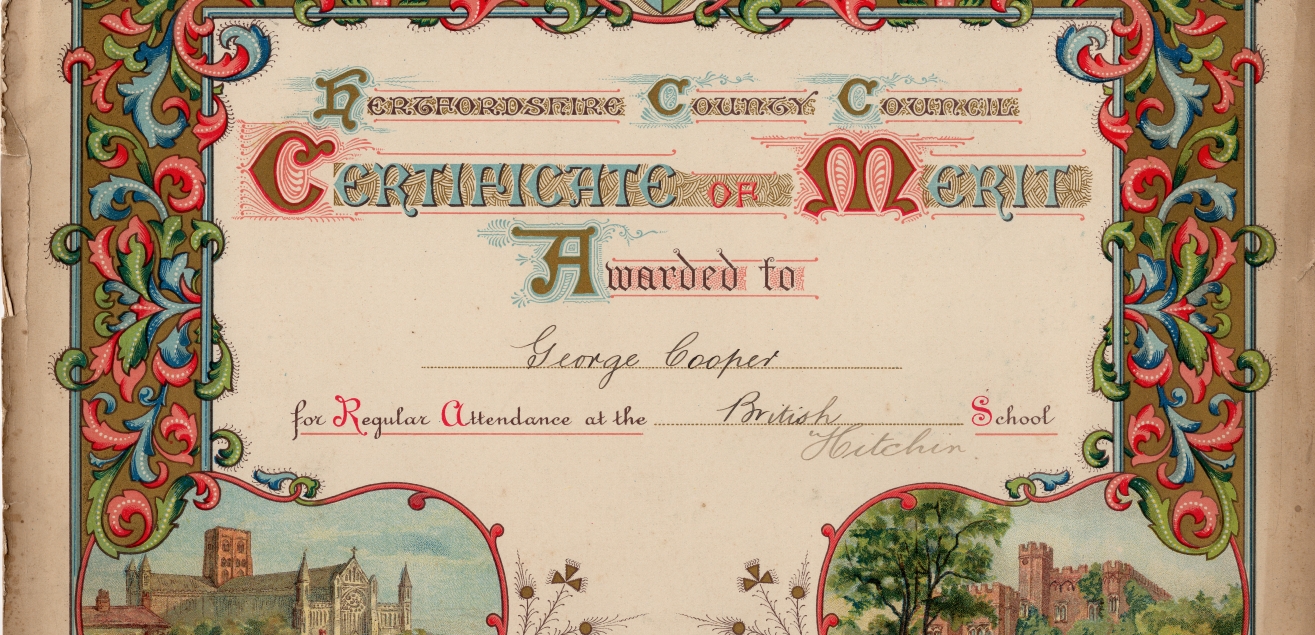 Hertfordshire County Council
Certificate of Merit
Awarded to
George Cooper
for Regular Attendance at the British School
Hitchin.